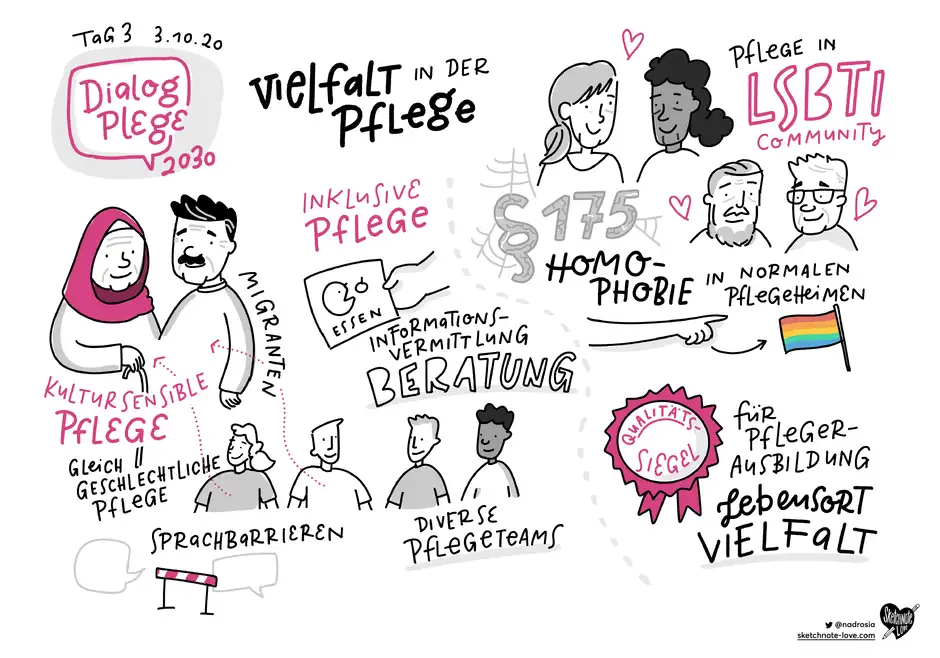 TAG 3 3.10.20
Dialog
PLEGE
2030
VIELFALT IN DER
PFLEGE
INKLUSIVE
PFLEGE
ESSEN
INFORMATIONS-
VERMITTLUNG
BERATUNG
MIGRANTEN
KULTURSENSIBLE
PFLEGE
GLEICH
GESCHLECHTLICHE
PFLEGE
SPRACHBARRIEREN
DIVERSE
PFLEGETEAMS
PFLEGE IN
LSBTI
COMMUNITY
§ 175
HOMO-
PHOBIE IN NORMALEN
PFLEGEHEIMEN
QUALITÄTS-
SIEGEL
FÜR
PFLEGER-
AUSBILDUNG
LEBENSORT
VIELFALT
@nadrosia
sketchnote-love.com
Sketchnote
Love